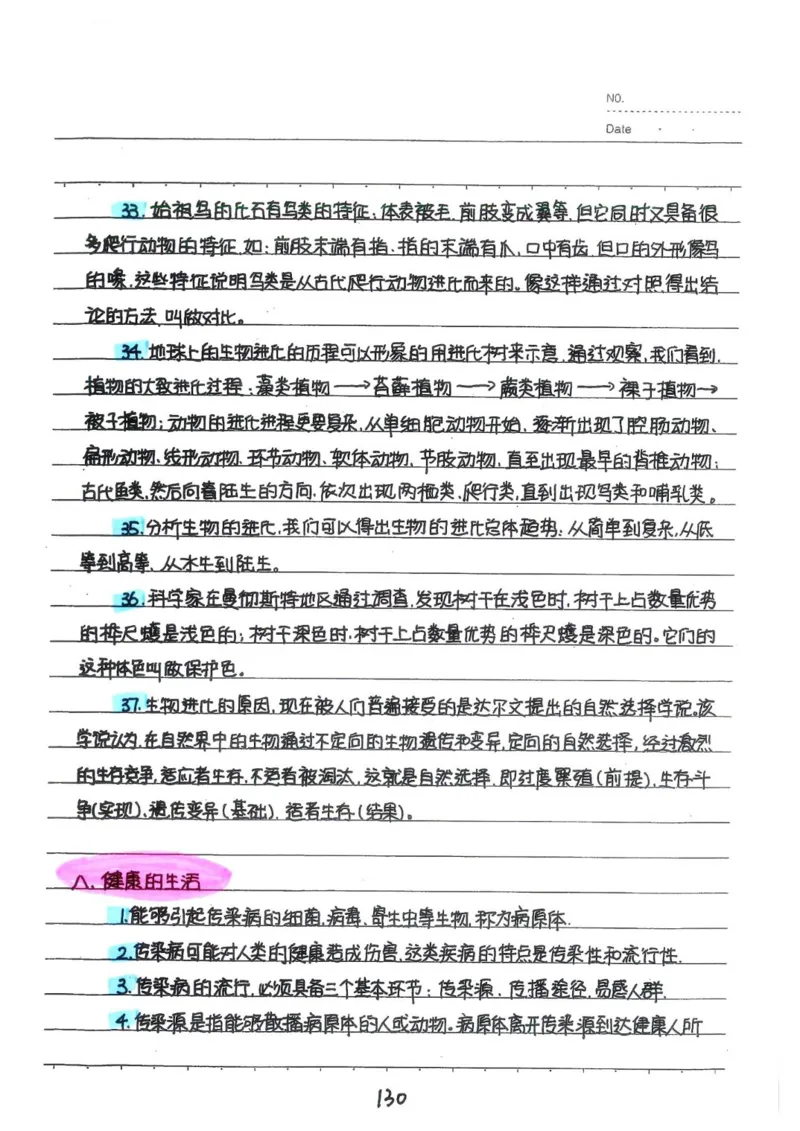 NO.
Date
33. 始祖鸟的化石有鸟类的特征:体表被毛.前肢变成翼等.但它同时又具备很
多爬行动物的特征.如:前肢末端有指.指的末端有爪,口中有齿.但口的外形像鸟
的喙.这些特征说明鸟类是从古代爬行动物进化而来的。像这样通过对照得出结
论的方法.叫做对比。
34. 地球上的生物进化的历程可以形象的用进化树来示意.通过观察,我们看到.
植物的大致进化过程:藻类植物→苔藓植物→蕨类植物→裸子植物→
被子植物;动物的进化进程更要复杂,从单细胞动物开始,逐渐出现了腔肠动物、
扁形动物、线形动物、环节动物、软体动物,节肢动物,直至出现最早的脊椎动物;
古代鱼类,然后向着陆生的方向.依次出现两栖类、爬行类,直到出现鸟类和哺乳类。
35.分析生物的进化,我们可以得出生物的进化总体趋势:从简单到复杂,从低
等到高等、从水生到陆生。
36.科学家在曼彻斯特地区通过调查,发现树干在浅色时,树干上占数量优势
的桦尺蠖是浅色的;树干深色时,树干上占数量优势的桦尺蠖是深色的。它们的
这种体色叫做保护色。
37.生物进化的原因,现在被人们普遍接受的是达尔文提出的自然选择学说。该
学说认为.在自然界中的生物通过不定向的生物遗传和变异,定向的自然选择,经过激烈
的生存竞争,适应者生存,不适者被淘汰,这就是自然选择.即过度繁殖(前提),生存斗
争(实现)、遗传变异(基础),适者生存(结果)。
八.健康的生活
1.能够引起传染病的细菌,病毒、寄生虫等生物,称为病原体.
2.传染病可能对人类的健康造成伤害,这类疾病的特点是传染性和流行性.
3.传染病的流行,必须具备三个基本环节:传染源、传播途径,易感人群.
4.传染源是指能够散播病原体的人或动物。病原体离开传染源到达健康人所
130